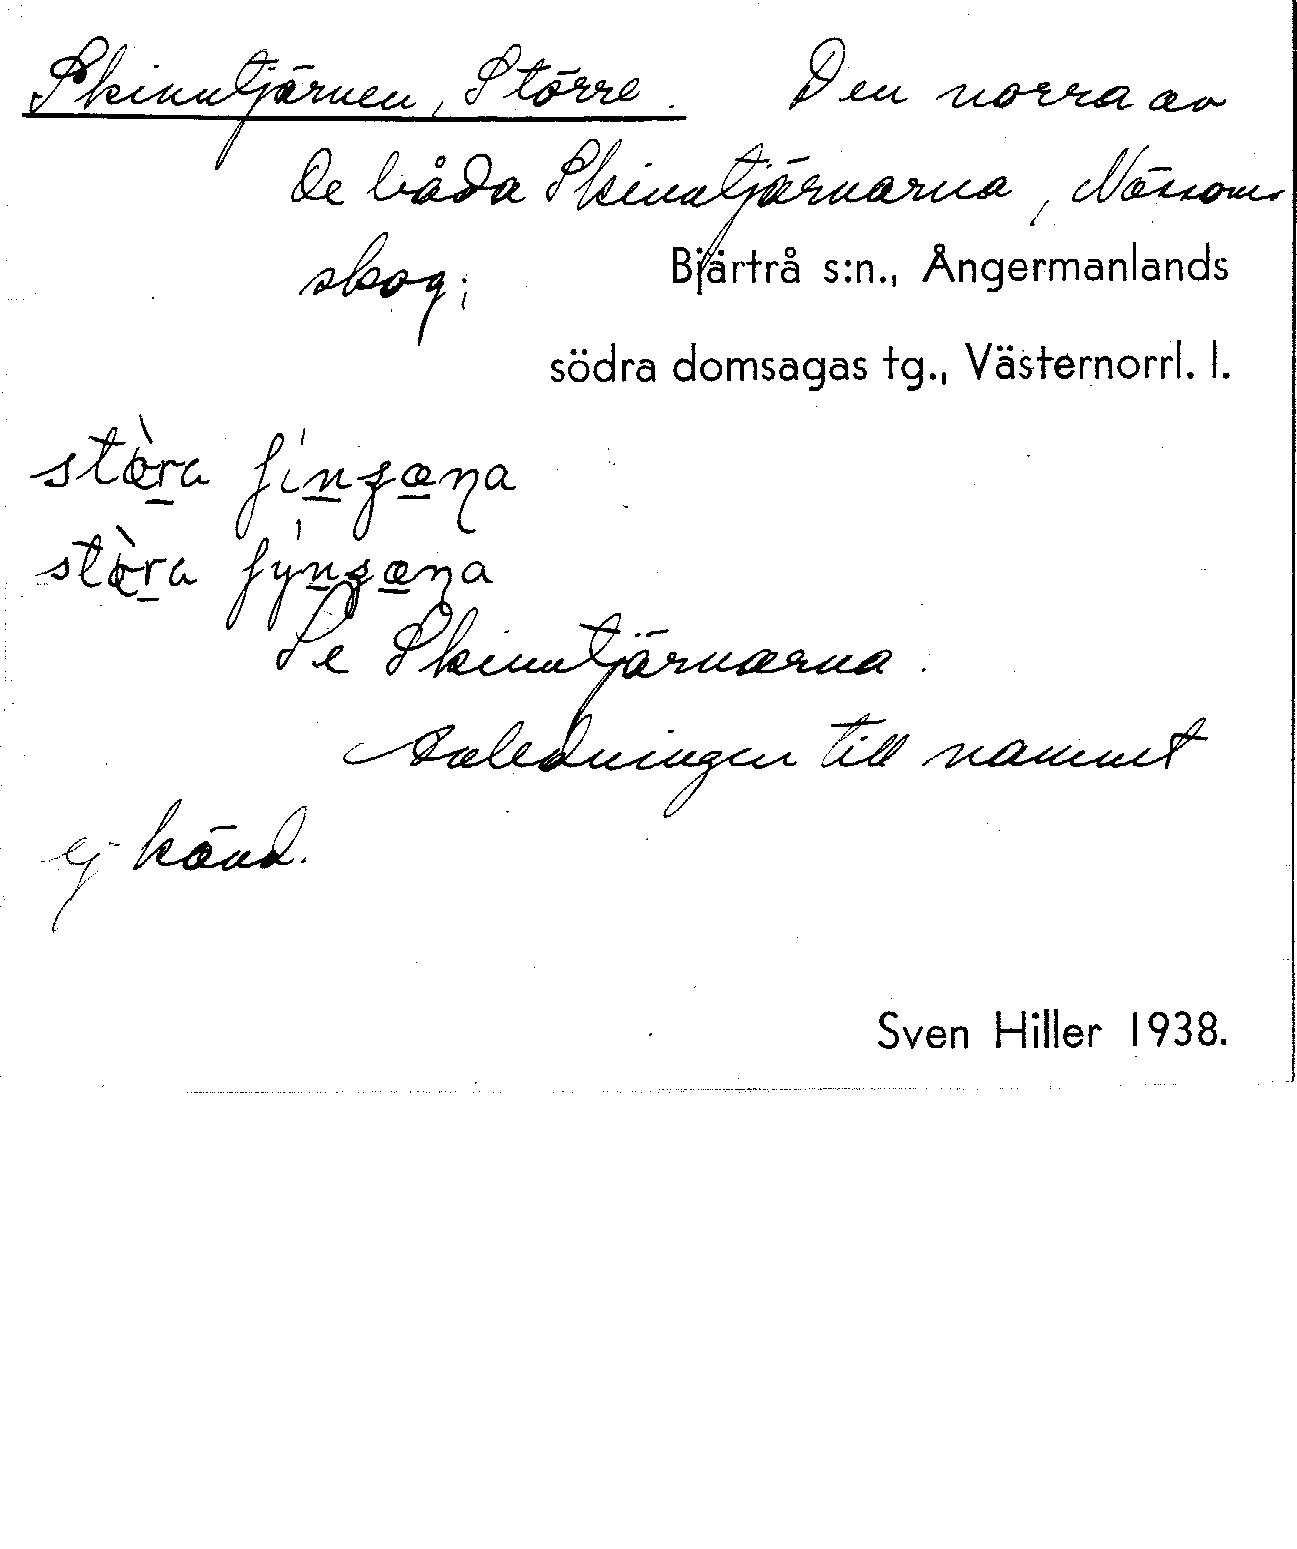 Skinntjärnen, Större. Den norra av
de båda Skinntjärnarna, Nässom-
skog;
Bjärtrå s:n., Ångermanlands
södra domsagas tg., Västernorrl. l.
stòra
stòra
Se Skinntjärnarna.
Anledningen till namnet
ej känd.
Sven Hiller 1938.